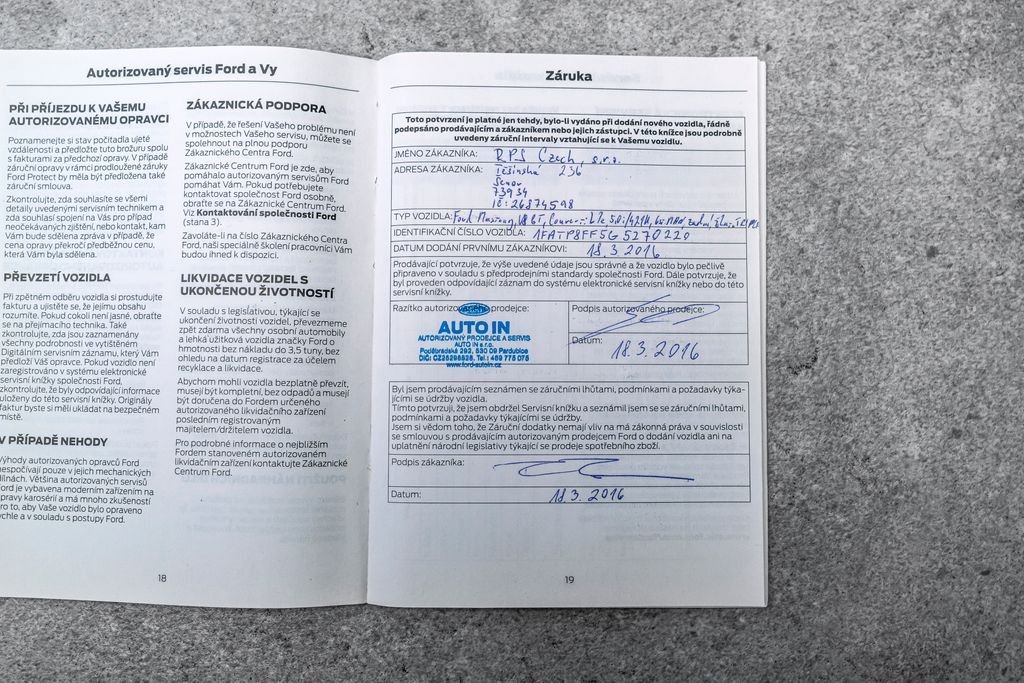 Autorizovaný servis Ford a Vy
PŘI PŘÍJEZDU K VAŠEMU
AUTORIZOVANÉMU OPRAVCI
Poznamenejte si stav počítadla ujeté
vzdálenosti a předložte tuto brožuru spolu
s fakturami za předchozí opravy. V případě
záruční opravy v rámci prodloužené záruky
Ford Protect by měla být předložena také
záruční smlouva.
Zkontrolujte, zda souhlasíte se všemi
detaily uvedenými servisním technikem a
zda souhlasí spojení na Vás pro případ
neočekávaných zjištění, nebo kontakt, kam
Vám bude sdělena zpráva v případě, že
cena opravy překročí předběžnou cenu,
která Vám byla sdělena.
PŘEVZETÍ VOZIDLA
Při zpětném odběru vozidla si prostudujte
fakturu a ujistěte se, že jejímu obsahu
rozumíte. Pokud cokoli není jasné, obraťte
se na přejímacího technika. Také
zkontrolujte, zda jsou zaznamenány
všechny podrobnosti ve vytištěném
Digitálním servisním záznamu, který Vám
předloží Váš opravce. Pokud vozidlo není
zaregistrováno v systému elektronické
servisní knížky společnosti Ford,
zkontrolujte, že byly odpovídající informace
uloženy do této servisní knížky. Originály
faktur byste si měli ukládat na bezpečném
místě.
V PŘÍPADĚ NEHODY
Výhody autorizovaných opravců Ford
nespočívají pouze v jejich mechanických
dílnách. Většina autorizovaných servisů
Ford je vybavena moderním zařízením na
opravy karosérií a má mnoho zkušeností
pro to, aby Vaše vozidlo bylo opraveno
rychle a v souladu s postupy Ford.
ZÁKAZNICKÁ PODPORA
V případě, že řešení Vašeho problému není
v možnostech Vašeho servisu, můžete se
spolehnout na plnou podporu
Zákaznického Centra Ford.
Zákaznické Centrum Ford je zde, aby
pomáhalo autorizovaným servisům Ford
pomáhat Vám. Pokud potřebujete
kontaktovat společnost Ford osobně,
obraťte se na Zákaznické Centrum Ford.
Viz Kontaktování společnosti Ford
(strana 3).
Zavoláte-li na číslo Zákaznického Centra
Ford, naši speciálně školení pracovníci Vám
budou ihned k dispozici.
LIKVIDACE VOZIDEL S
UKONČENOU ŽIVOTNOSTÍ
V souladu s legislativou, týkající se
ukončení životnosti vozidel, převezmeme
zpět zdarma všechny osobní automobily
a lehká užitková vozidla značky Ford o
hmotnosti bez nákladu do 3,5 tuny, bez
ohledu na datum registrace za účelem
recyklace a likvidace.
Abychom mohli vozidla bezplatně převzít,
musejí být kompletní, bez odpadů a musejí
být doručena do Fordem určeného
autorizovaného likvidačního zařízení
posledním registrovaným
majitelem/držitelem vozidla.
Pro podrobné informace o nejbližším
Fordem stanoveném autorizovaném
likvidačním zařízení kontaktujte Zákaznické
Centrum Ford.
18
Záruka
Toto potvrzení je platné jen tehdy, bylo-li vydáno při dodání nového vozidla, řádně
podepsáno prodávajícím a zákazníkem nebo jejich zástupci. V této knížce jsou podrobně
uvedeny záruční intervaly vztahující se k Vašemu vozidlu.
JMÉNO ZÁKAZNÍKA: RPS Czech, s.r.o.
ADRESA ZÁKAZNÍKA: Těšínská 236
Šenov
73934
IČ: 26874598
TYP VOZIDLA: Ford Mustang, V8 GT, 5.0i/421k,
IDENTIFIKAČNÍ ČÍSLO VOZIDLA: 1FATP8FF5G5270220
DATUM DODÁNÍ PRVNÍMU ZÁKAZNÍKOVI: 18.3.2016
Prodávající potvrzuje, že výše uvedené údaje jsou správné a že vozidlo bylo pečlivě
připraveno v souladu s předprodejními standardy společnosti Ford. Dále potvrzuje, že
byl proveden odpovídající záznam do systému elektronické servisní knížky nebo do této
servisní knížky.
Razítko autorizovaného prodejce:
AUTO IN
AUTORIZOVANÝ PRODEJCE A SERVIS
AUTO IN s.r.o.
Poděbradská 292, 530 09 Pardubice
DIČ: CZ25298828, Tel.: 469 775 075
www.ford-autoin.cz
Podpis autorizovaného prodejce:
Datum: 18.3.2016
Byl jsem prodávajícím seznámen se záručními lhůtami, podmínkami a požadavky týka-
jícími se údržby vozidla.
Tímto potvrzuji, že jsem obdržel Servisní knížku a seznámil jsem se se záručními lhůtami,
podmínkami a požadavky týkajícími se údržby.
Jsem si vědom toho, že Záruční dodatky nemají vliv na má zákonná práva v souvislosti
se smlouvou s prodávajícím autorizovaným prodejcem Ford o dodání vozidla ani na
uplatnění národní legislativy týkající se prodeje spotřebního zboží.
Podpis zákazníka:
Datum: 18.3.2016
19